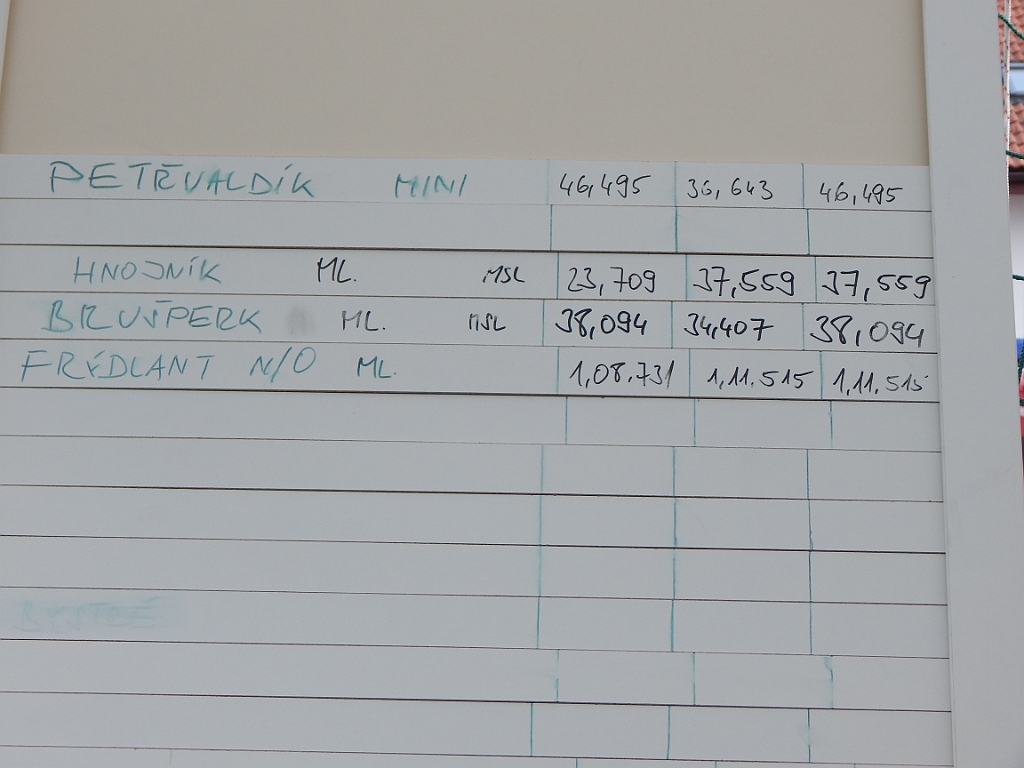 PETŘVALDÍK MINI 46,495 36,643 46,495
HNOJNÍK ML. MSL 23,709 37,559 37,559
BRUŠPERK ML. MSL 38,094 34,407 38,094
FRÝDLANT N/O ML. 1,08.731 1,11.515 1,11.515
BYSTRÉ